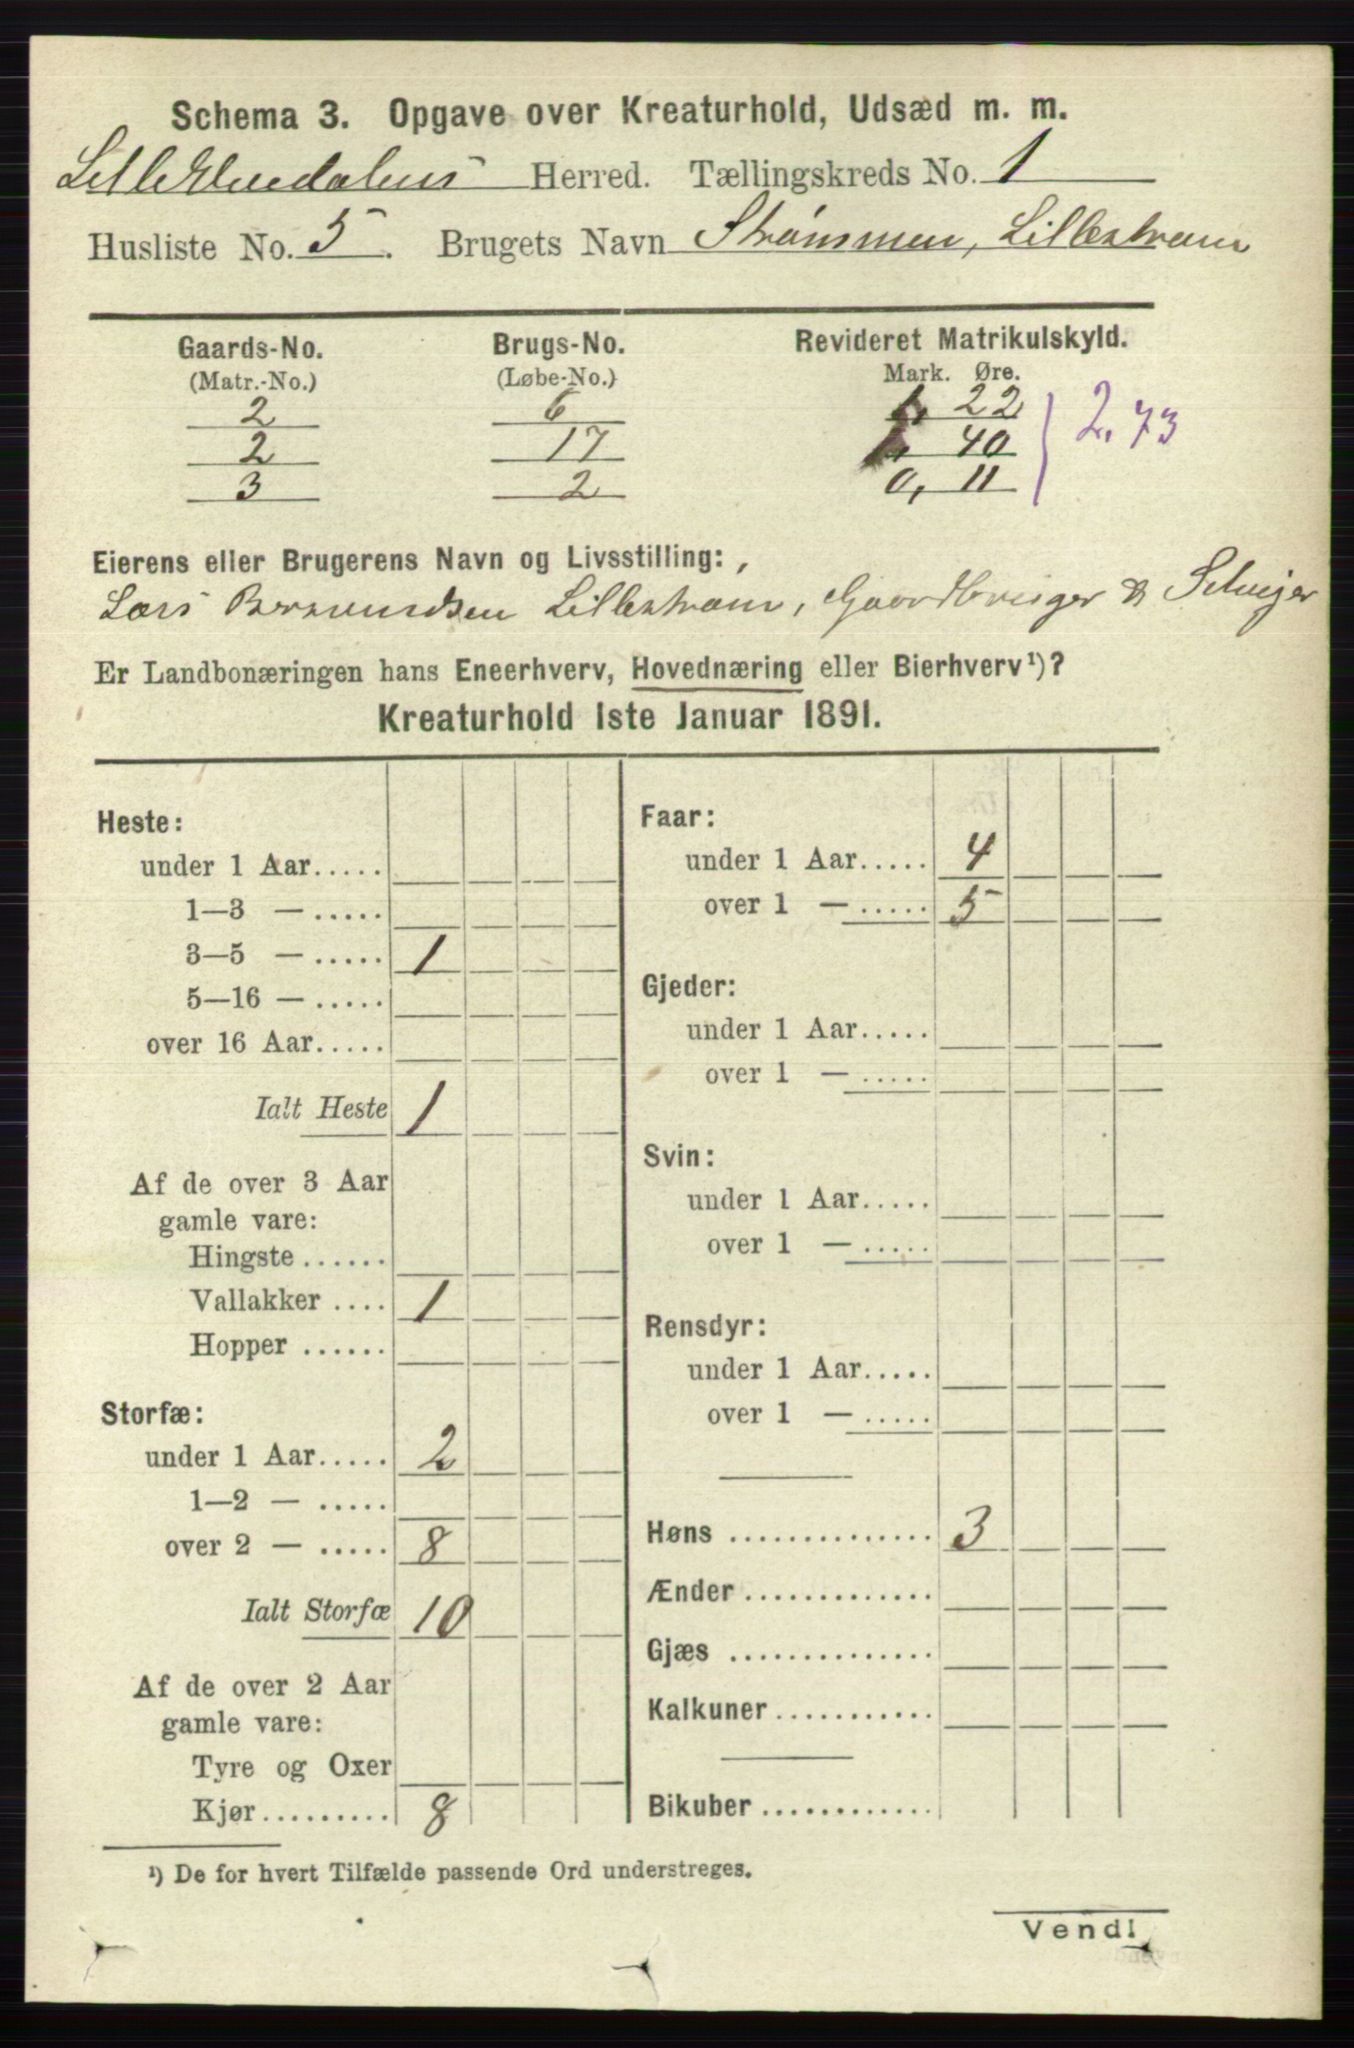 Schema 3. Opgave over Kreaturhold, Udsæd m. m.
Lille Elvedalens Herred. Tællingskreds No. 1
Husliste No. 5. Brugets Navn Strømmen, Lillestrøm
Gaards-No. Brugs-No. Revideret Matrikulskyld.
(Matr.-No.) (Løbe-No.) Mark. Øre.
2 6 1, 22
2 17 1, 40 2,73
3 2 0, 11
Eierens eller Brugerens Navn og Livsstilling:
Lars Lillestrøm, Gaardbruger & Selveier
Er Landbonæringen hans Eneerhverv, Hovednæring eller Bierhverv¹)?
Kreaturhold 1ste Januar 1891.
Heste:
under 1 Aar.....
1—3 — .....
3—5 — ..... 1
5—16 — .....
over 16 Aar.....
Ialt Heste 1
Af de over 3 Aar
gamle vare:
Hingste ......
Vallakker .... 1
Hopper ......
Storfæ:
under 1 Aar..... 2
1—2 — .....
over 2 — ..... 8
Ialt Storfæ 10
Af de over 2 Aar
gamle vare:
Tyre og Oxer
Kjør......... 8
Faar:
under 1 Aar..... 4
over 1 — ..... 5
Gjeder:
under 1 Aar.....
over 1 — .....
Svin:
under 1 Aar.....
over 1 — .....
Rensdyr:
under 1 Aar.....
over 1 — .....
Høns .............. 3
Ænder.............
Gjæs ..............
Kalkuner...........
Bikuber ............
¹) De for hvert Tilfælde passende Ord understreges.
Vend!